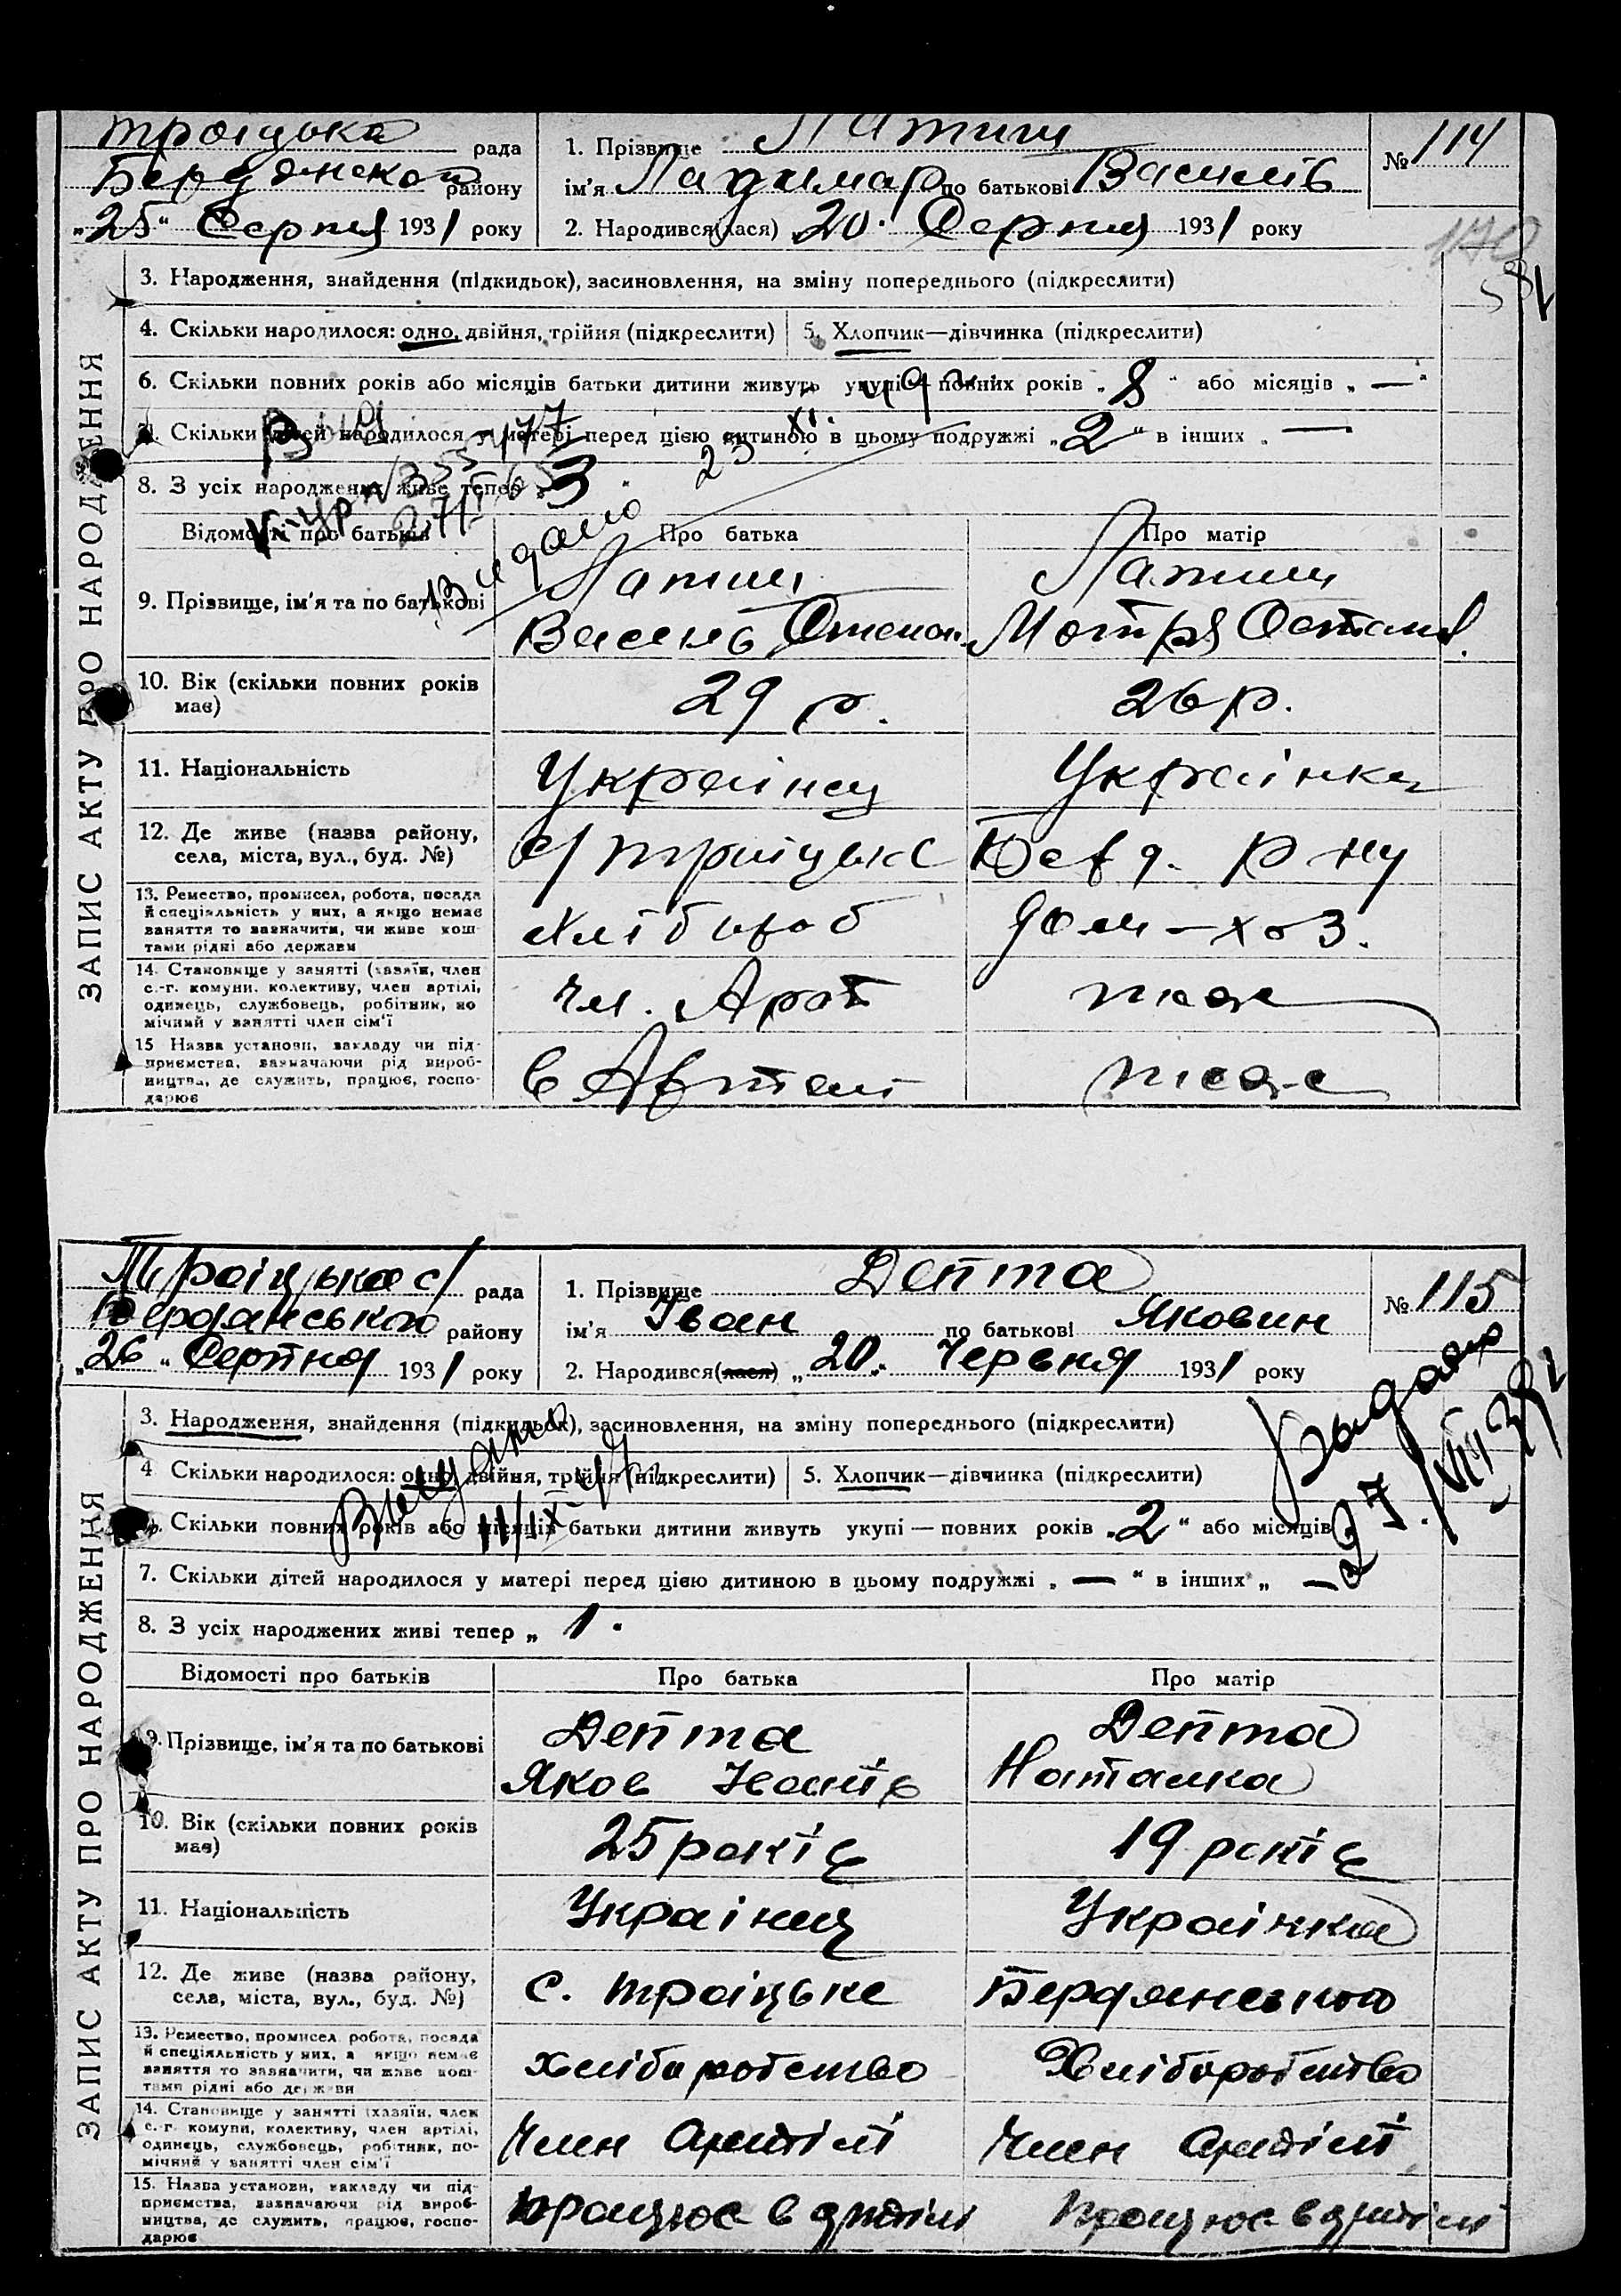 Троіцька рада
Бердянської району
„25“ Серпня 1931 року
1. Прізвище
ім'я по батькові Василів
2. Народився(лася) 20. Серпня 1931 року
№ 114
3. Народження, знайдення (підкидьок), засиновлення, на зміну попереднього (підкреслити)
4. Скільки народилося: одно, двійня, трійня (підкреслити) 5. Хлопчик—дівчинка (підкреслити)
6. Скільки повних років або місяців батьки дитини живуть укупі — повних років „8“ або місяців „—“
7. Скільки дітей народилося у матері перед цією дитиною в цьому подружжі „2“ в інших „ —
8. З усіх народжених живе тепер „3
Видано 23
Відомості про батьків Про батька Про матір
9. Прізвище, ім'я та по батькові
Василь Степан. Мотря Остапів.
10. Вік (скільки повних років має) 29 р. 26 р.
11. Національність Українец Українка
12. Де живе (назва району, села, міста, вул., буд. №) с/ Троіцьке Берд. р-ну
13. Ремество, промисел, робота, посада
й спеціяльність у них, а якщо немає
заняття то зазначити, чи живе кош-
тами рідні або держави
Хлібороб дом-хоз.
14. Становище у занятті (хазяїн, член
с.-г. комуни, колективу, член артілі,
одинець, службовець, робітник, по-
мічний у занятті член сім'ї
чл. Арт тоже
15 Назва установи, закладу чи під-
приємства, зазначаючи рід вироб-
ництва, де служить, працює, госпо-
дарює
в Артелі тоже
ЗАПИС АКТУ ПРО НАРОДЖЕННЯ
Троіцька с/ рада
Бердянського району
„26“ Серпня 1931 року
1. Прізвище Депта
ім'я Іван по батькові Яковин
2. Народився(лася) „20“ Червня 1931 року
№ 115
3. Народження, знайдення (підкидьок), засиновлення, на зміну попереднього (підкреслити)
4 Скільки народилося: одно, двійня, трійня (підкреслити) 5. Хлопчик—дівчинка (підкреслити)
6. Скільки повних років або місяців батьки дитини живуть укупі — повних років „2“ або місяців
7. Скільки дітей народилося у матері перед цією дитиною в цьому подружжі „—“ в інших „ —
8. З усіх народжених живі тепер „ 1.
Видано
Выдано
Відомості про батьків Про батька Про матір
9. Прізвище, ім'я та по батькові
Депта Депта
Яков Іванів Наталка
10. Вік (скільки повних років має) 25 років 19 років
11. Національність Україниц Українка
12. Де живе (назва району, села, міста, вул., буд. №) с. Троіцьке Бердянського
13. Ремество, промисел робота, посада
й спеціяльність у них, а якщо немає
заняття то зазначити, чи живе кош-
тами рідні або держави
хліборобство Хліборобство
14. Становище у занятті (хазяїн, член
с.-г. комуни, колективу, член артілі,
одинець, службовець, робітник, по-
мічний у занятті член сім'ї
Член артілі Член артілі
15. Назва установи, закладу чи під-
приємства, зазначаючи рід вироб-
ництва, де служить, працює, госпо-
дарює
Працює в артілі Працює в артілі
ЗАПИС АКТУ ПРО НАРОДЖЕННЯ